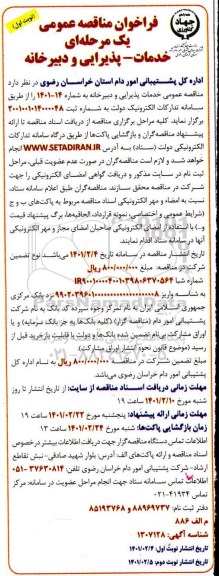 (نوبت اول)
جهاد کشاورزی
فراخوان مناقصه عمومی
یک مرحله‌ای
خدمات- پذیرایی و دبیرخانه
اداره کل پشتیبانی امور دام استان خراسان رضوی در نظر دارد
مناقصه عمومی خدمات پذیرایی و دبیرخانه به شماره ۱۴-۱۴۰۱ را از طریق
سامانه تدارکات الکترونیک دولت به شماره ثبت
برگزار نماید. کلیه مراحل برگزاری مناقصه از دریافت اسناد مناقصه تا ارائه
پیشنهاد مناقصه‌گران و بازگشایی پاکت‌ها از طریق درگاه سامانه تدارکات
الکترونیکی دولت (ستاد) به آدرس WWW.SETADIRAN.IR انجام
خواهد شد و لازم است مناقصه‌گران در صورت عدم عضویت قبلی، مراحل
ثبت نام در سایت مذکور و دریافت گواهی امضای الکترونیکی را جهت
شرکت در مناقصه محقق سازند. مناقصه‌گران طبق اعلام سامانه ستاد،
نسبت به امضاء و مهر الکترونیکی اسناد مناقصه مربوط به پاکت‌های ب و ج
(شرایط عمومی و اختصاصی، نمونه قرارداد، الحاقیه‌ها، برگ پیشنهاد قیمت
و...) با استفاده از امضای الکترونیکی صاحبان امضای مجاز و مهر الکترونیکی
آنها در سامانه ستاد اقدام نمایند.
تاریخ انتشار مناقصه در سامانه تاریخ ۱۴۰۱/۲/۴ می‌باشد نوع تضمین
شرکت در مناقصه: مبلغ ۸۰۰/۰۰۰/۰۰۰ ریال
شماره شبا
به شناسه واریز نزد بانک مرکزی
جمهوری اسلامی ایران به نام تمرکز وجوه سپرده کد بانک به نام شرکت
پشتیبانی امور دام
مبلغ تضمین شرکت در مناقصه: ۸۰۰/۰۰۰/۰۰۰ ریال به نام اداره کل
پشتیبانی امور دام خراسان رضوی می‌باشد.
مهلت زمانی دریافت اسناد مناقصه از سایت: از تاریخ انتشار تا روز
شنبه مورخ ۱۴۰۱/۲/۱۰ ساعت ۱۹
مهلت زمانی ارائه پیشنهاد: پنجشنبه مورخ ۱۴۰۱/۰۲/۲۲ ساعت ۱۹
زمان بازگشایی پاکت‌ها: شنبه مورخ ۱۴۰۱/۰۲/۲۴ ساعت ۱۳
اطلاعات تماس دستگاه مناقصه‌گزار جهت دریافت اطلاعات بیشتر در خصوص
اسناد مناقصه و ارائه پاکت‌های الف: آدرس بلوار شهید صادقی- نبش تقاطع
ارشاد- شرکت پشتیبانی امور دام خراسان رضوی تلفن: ۳۷۶۲۰۸۱۴-۰۵۱
اطلاعات تماس سامانه ستاد جهت انجام مراحل عضویت در سامانه: مرکز
تماس ۴۱۹۳۴-۰۲۱
دفتر ثبت نام: ۸۸۹۶۹۷۳۷ و ۸۵۱۹۳۷۶۸
م الف ۸۸۶
شناسه آگهی: ۱۳۰۷۱۲۸
تاریخ انتشار نوبت اول: ۱۴۰۱/۰۲/۴
تاریخ انتشار نوبت دوم: ۱۴۰۱/۰۲/۵